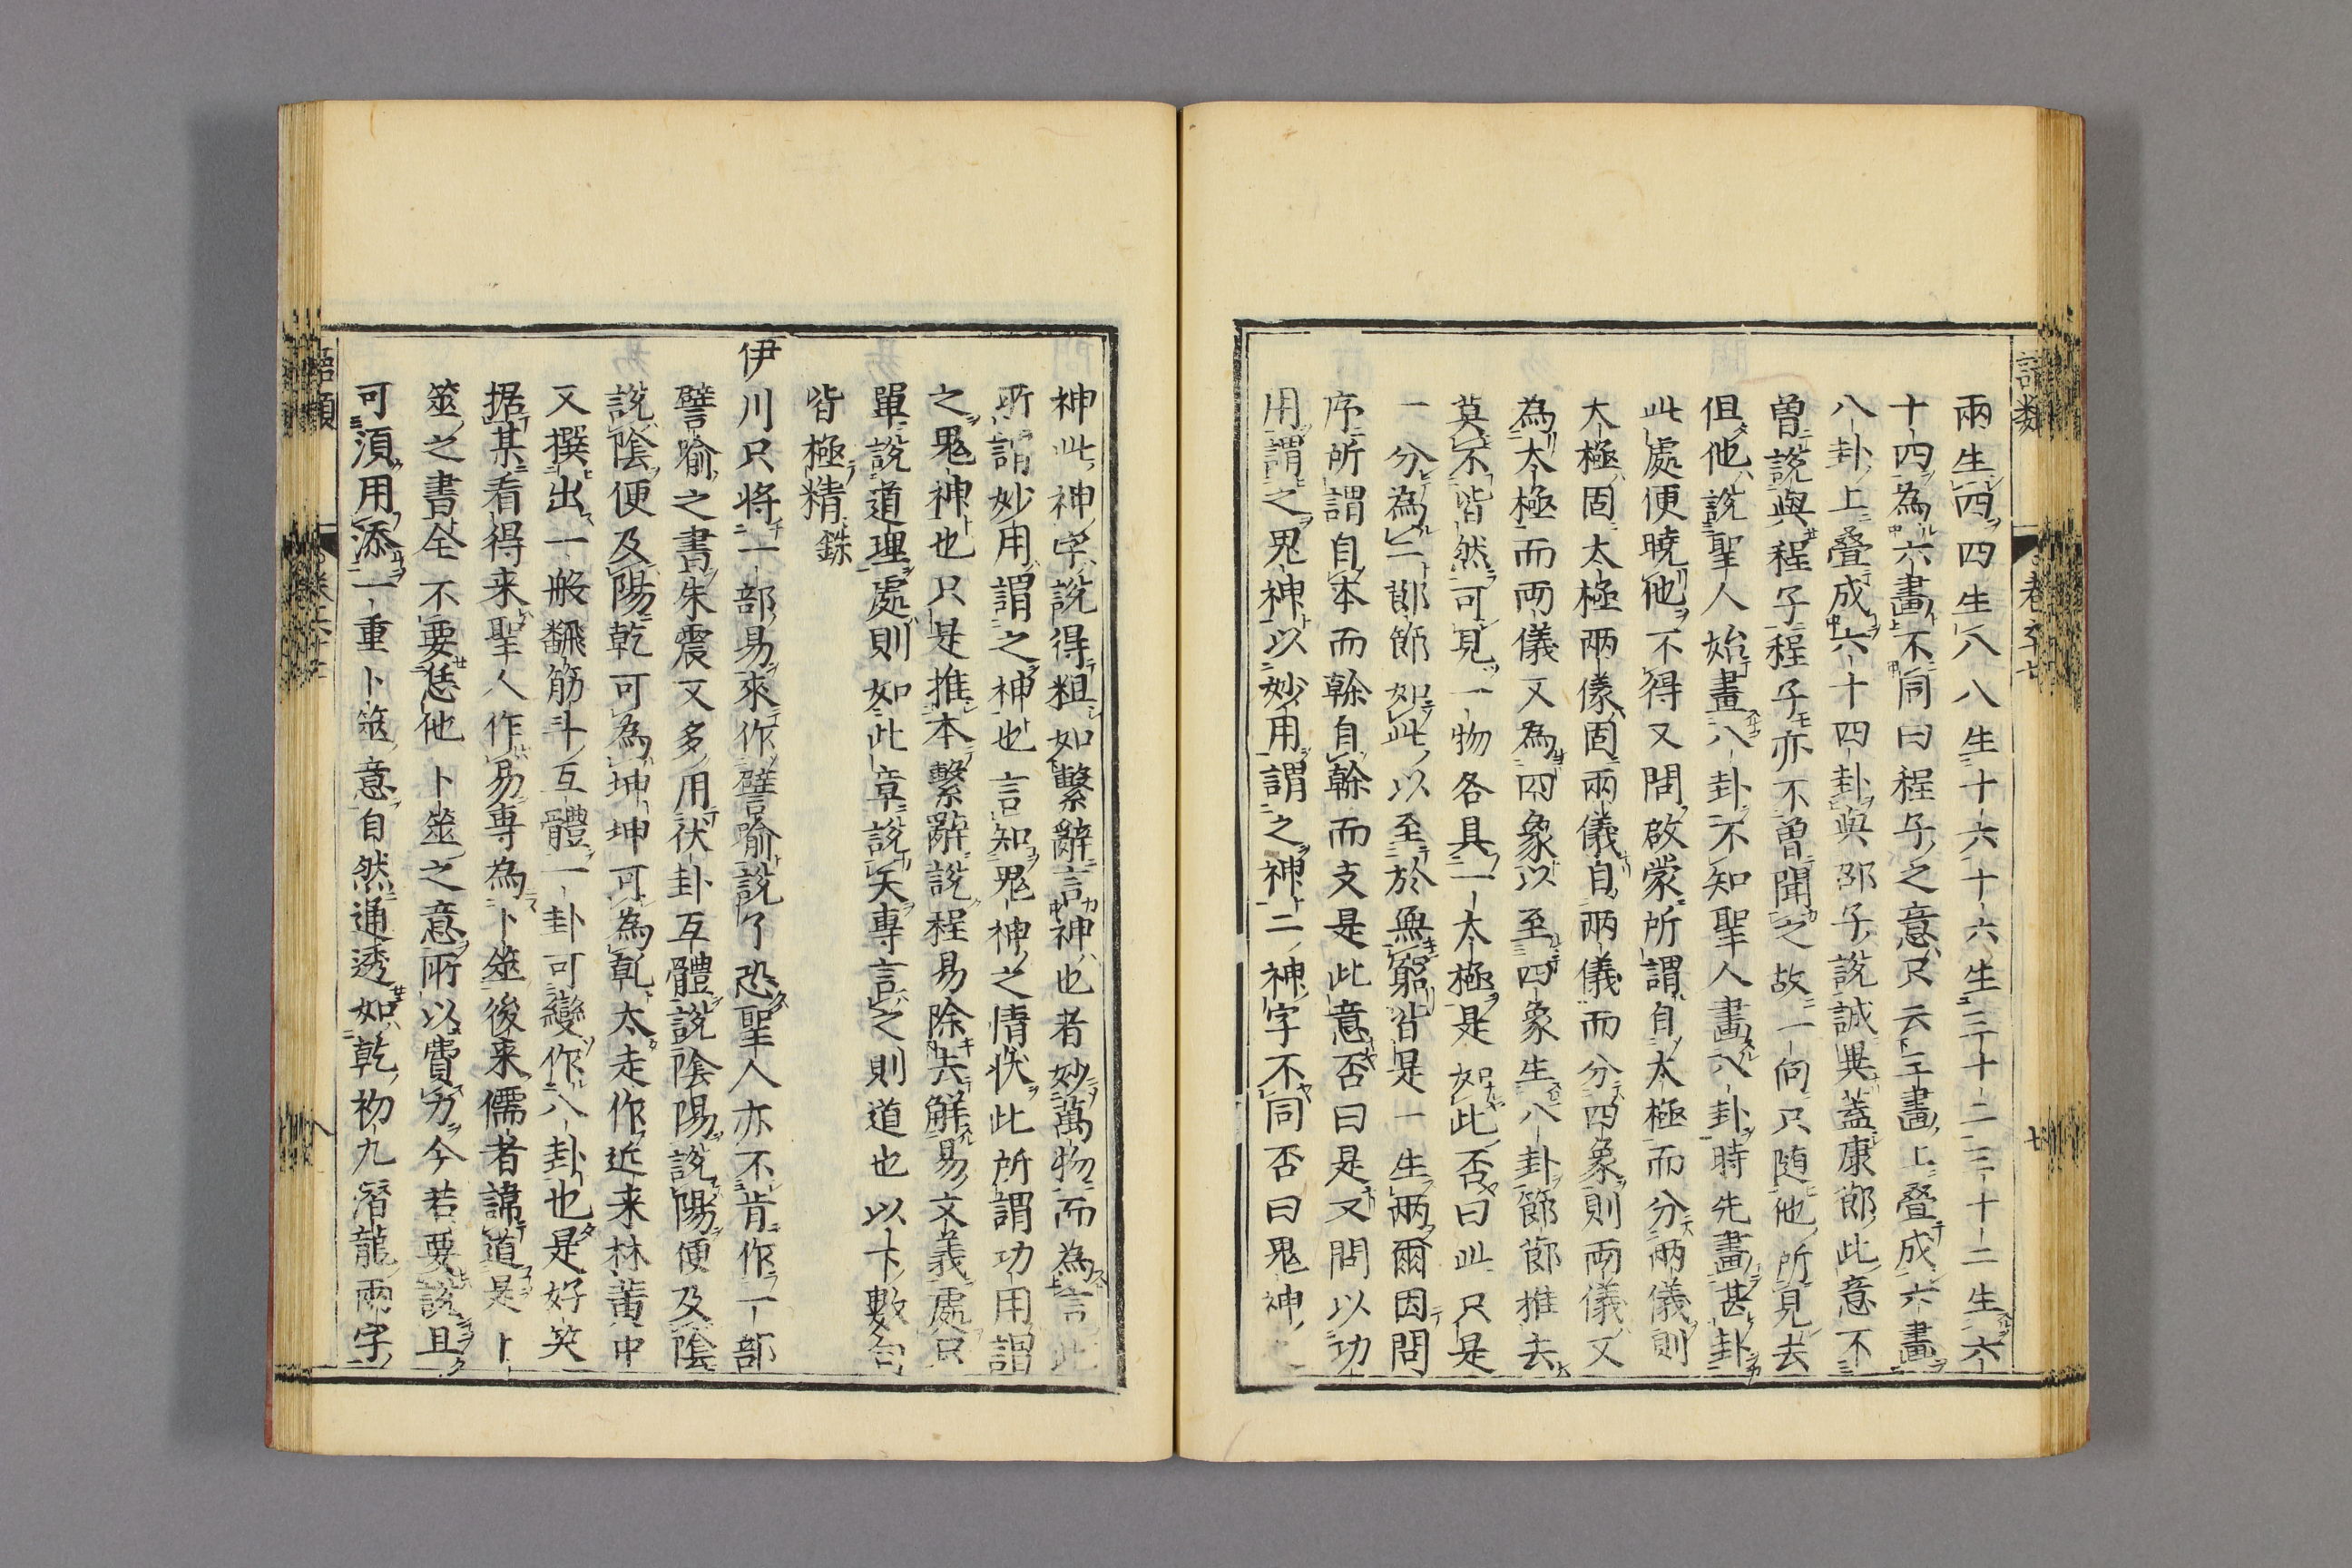 兩生四四生八八生十六十六生三十二三十二生六
十四為六畫不同曰程子之意只云三畫上疊成六畫
八卦上疊成六十四卦與邵子說誠異蓋康節此意不
曾說與程子程子亦不曾聞之故一向只随他所見去
但他說聖人始畫八卦不知聖人畫八卦時先畫甚卦
此處便曉他不得又問啟蒙所謂自太極而分兩儀則
太極固太極兩儀固兩儀自兩儀而分四象則兩儀又
為太極而兩儀又為四象以至四象生八卦節節推去
莫不皆然可見一物各具一太極是如此否曰此只是
一分為二節節如此以至於無窮皆是一生兩爾因問
序所謂自本而幹自幹而支是此意否曰是又問以功
用謂之鬼神以妙用謂之神二神字不同否曰鬼神
神此神字說得粗如繫辭言神也者妙萬物而為言此
所謂妙用謂之神也言知鬼神之情狀此所謂功用謂
之鬼神也只是推本繫辭說程易除去解易文義處只
單說道理處則如此章說天專言之則道也以下數句
皆極精銖
伊川只将一部易來作譬喻說了恐聖人亦不肯作一部
譬喻之書朱震又多用伏卦互體說陰陽說陽便及陰
說陰便及陽乾可為坤坤可為乾太走作近来林黃中
又撰出一般飜筋斗互體一卦可變作八卦也是好笑
据某看得来聖人作易專為卜筮後来儒者諱道是卜
筮之書全不要惹他卜筮之意所以費力今若要說且
可須用添一重卜筮意自然通透如乾初九潛龍兩字
語類
七